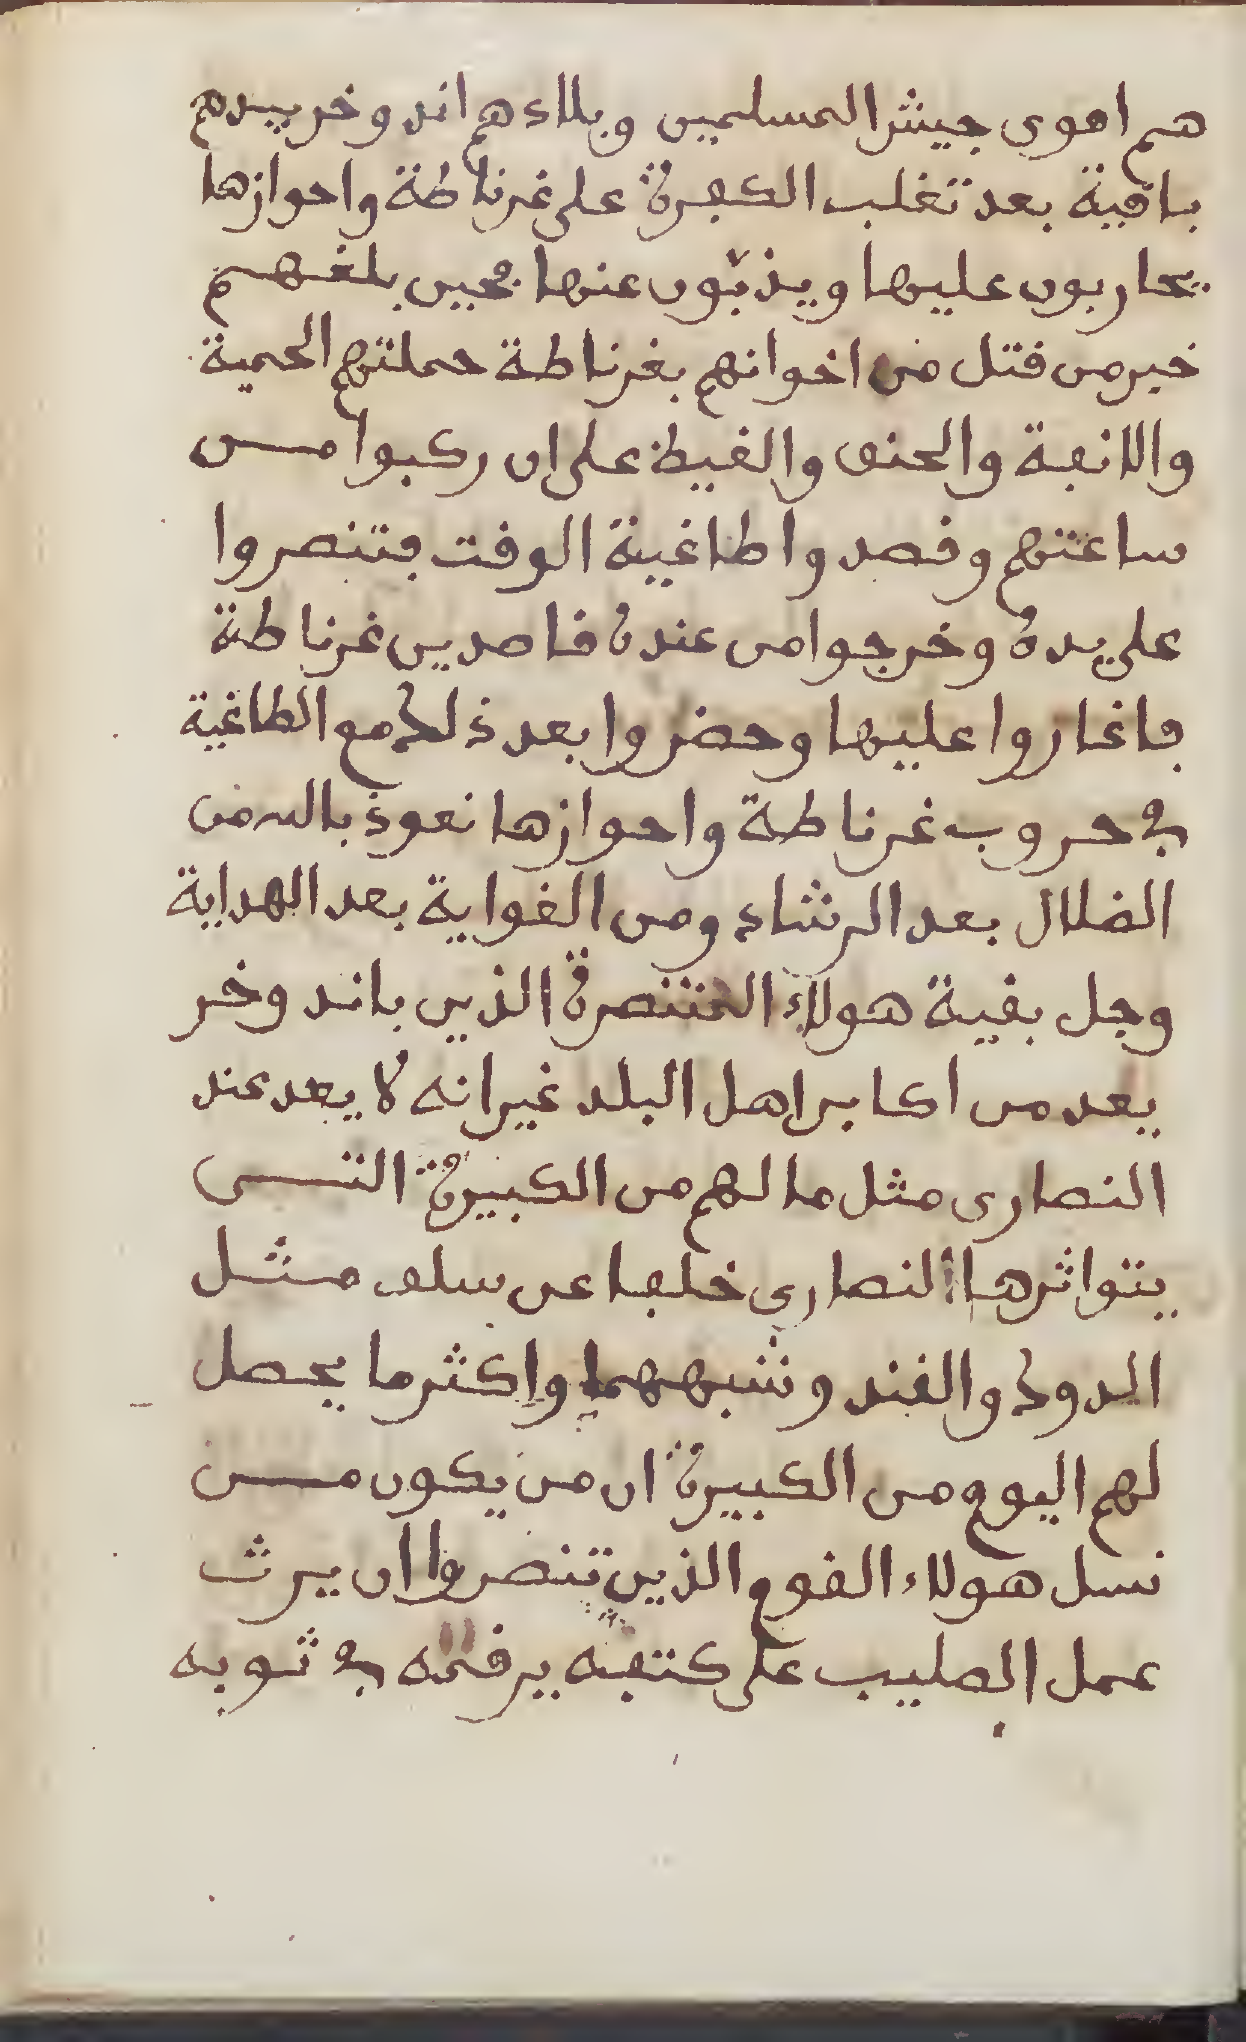 هم اهوى جيش المسلمين وبلادهم اندوخر بيدهم
باقية بعد تغلب الكفرة على غرناطة واحوازها
يحاربون عليها ويذبّون عنها فحين بلغهم
خبر من قتل من اخوانهم بغرناطة حملتهم الحمية
والانفة والحنق والغيظ على ان ركبوا من
ساعتهم وقصدوا طاغية الوقت فتنصروا
على يده وخرجوا من عنده قاصدين غرناطة
فاغاروا عليها وحضروا بعد ذلك مع الطاغية
في حروب غرناطة واحوازها نعوذ بالله من
الضلال بعد الرشاد ومن الغواية بعد الهداية
وجل بقية هولاء المتنصرة الذين باندوخر
يعد من اكابر اهل البلد غير انه لا يعد عند
النصارى مثل ما لهم من الكبيرة التي
يتواثرها النصارى خلفا عن سلف مثل
الدوك والفند وشبههما واكثر ما يحصل
لهم اليوم من الكبيرة ان من يكون من
نسل هولاء القوم الذين تنصروا ان يرث
عمل الصليب على كتفه يرقمه في ثوبه